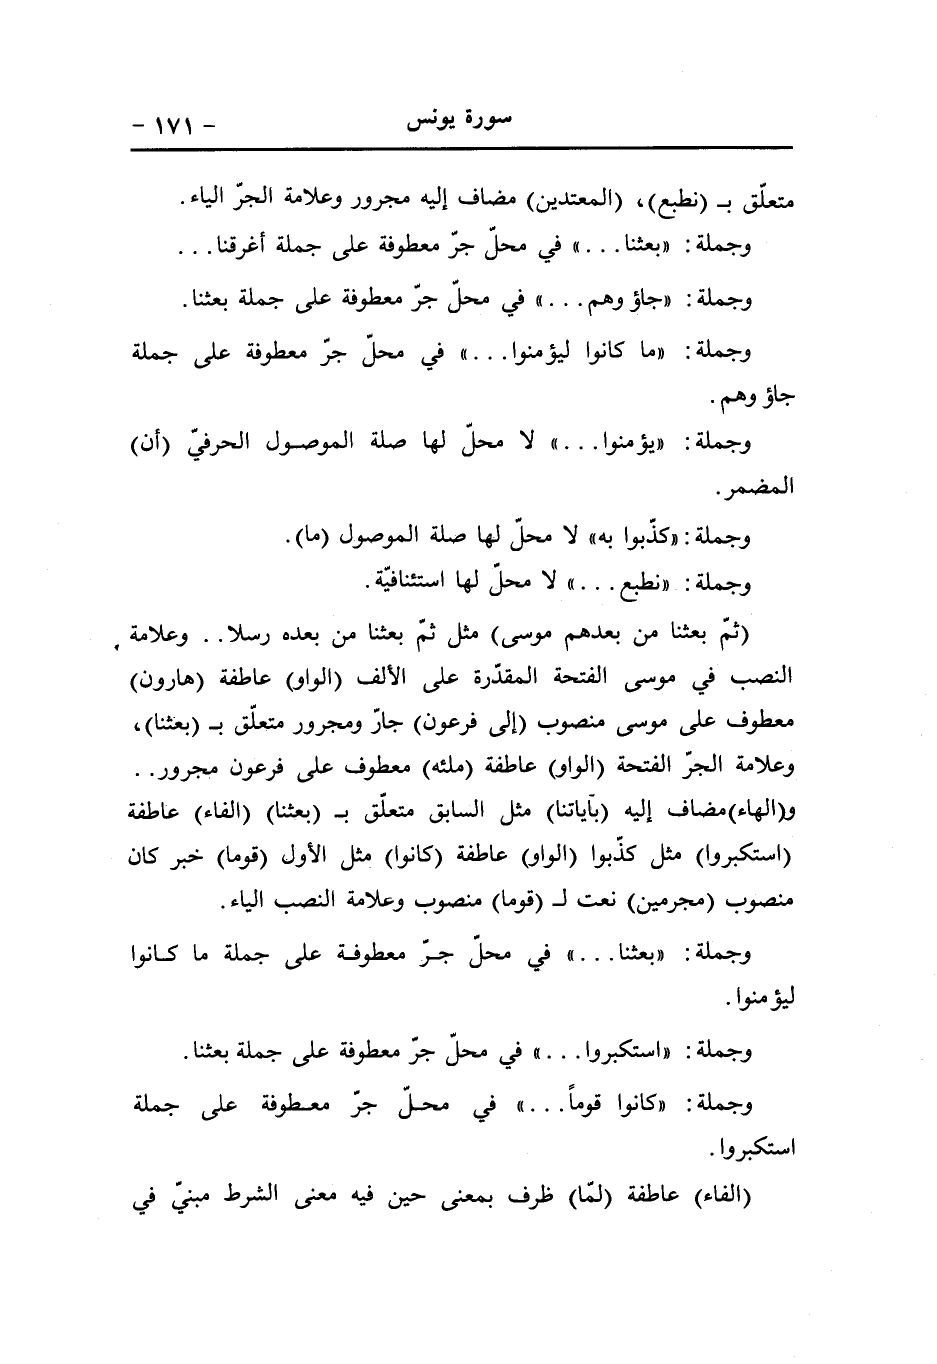 سورة يونس
- ١٧١ -
متعلّق بـ (نطبع)، (المعتدين) مضاف إليه مجرور وعلامة الجرّ الياء.
وجملة: «بعثنا...» في محلّ جرّ معطوفة على جملة أغرقنا...
وجملة: «جاؤ وهم...» في محلّ جرّ معطوفة على جملة بعثنا.
وجملة: «ما كانوا ليؤمنوا...» في محلّ جرّ معطوفة على جملة
جاؤ وهم.
وجملة: «يؤمنوا...» لا محلّ لها صلة الموصول الحرفيّ (أن)
المضمر.
وجملة: «كذّبوا به» لا محلّ لها صلة الموصول (ما).
وجملة: «نطبع...» لا محلّ لها استئنافيّة.
(ثمّ بعثنا من بعدهم موسى) مثل ثمّ بعثنا من بعده رسلا.. وعلامة
النصب في موسى الفتحة المقدّرة على الألف (الواو) عاطفة (هارون)
معطوف على موسى منصوب (إلى فرعون) جارّ ومجرور متعلّق بـ (بعثنا)،
وعلامة الجرّ الفتحة (الواو) عاطفة (ملئه) معطوف على فرعون مجرور..
و(الهاء)مضاف إليه (بآياتنا) مثل السابق متعلّق بـ (بعثنا) (الفاء) عاطفة
(استكبروا) مثل كذّبوا (الواو) عاطفة (كانوا) مثل الأول (قوما) خبر كان
منصوب (مجرمين) نعت لـ (قوما) منصوب وعلامة النصب الياء.
وجملة: «بعثنا...» في محلّ جرّ معطوفة على جملة ما كانوا
ليؤمنوا.
وجملة: «استكبروا...» في محلّ جرّ معطوفة على جملة بعثنا.
وجملة: «كانوا قوماً...» في محلّ جرّ معطوفة على جملة
استكبروا.
(الفاء) عاطفة (لمّا) ظرف بمعنى حين فيه معنى الشرط مبنيّ في